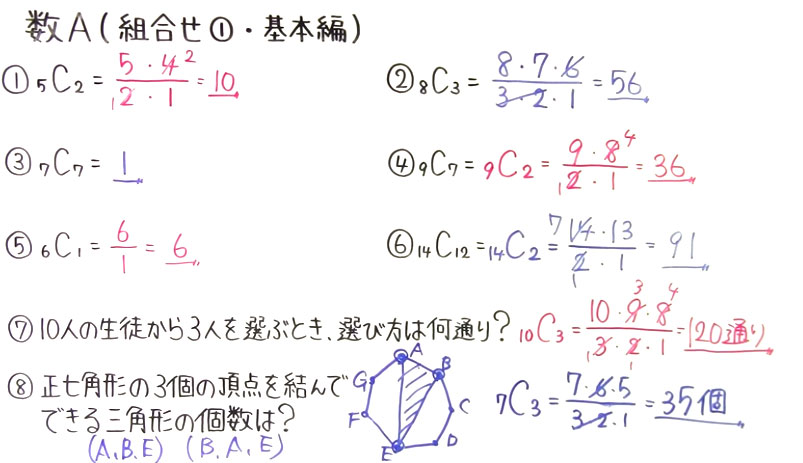 数A(組合せ①・基本編)
① ₅C₂ = 5・4²/₁2・1 = 10
② ₈C₃ = 8・7・6/3・2・1 = 56
③ ₇C₇ = 1
④ ₉C₇ = ₉C₂ = 9・8⁴/₁2・1 = 36
⑤ ₆C₁ = 6/1 = 6
⑥ ₁₄C₁₂ = ₁₄C₂ = ⁷14・13/₁2・1 = 91
⑦ 10人の生徒から3人を選ぶとき、選び方は何通り? ₁₀C₃ = 10・9³・8⁴/₁3・2₁・1 = 120通り
⑧ 正七角形の3個の頂点を結んで
できる三角形の個数は?
(A,B,E) (B,A,E)
A
B
C
D
E
F
G
₇C₃ = 7・6・5/3・2・1 = 35個